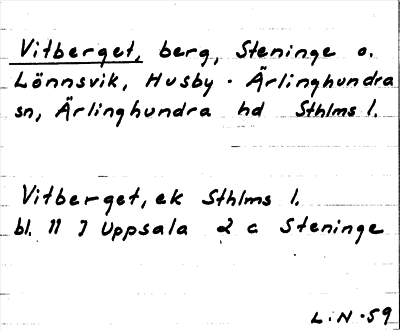 Vitberget, berg, Steninge o.
Lönnsvik, Husby-Ärlinghundra
sn, Ärlinghundra hd Sthlms l.
Vitberget, ek Sthlms l.
bl. 11 I Uppsala 2 c Steninge
L.N.59